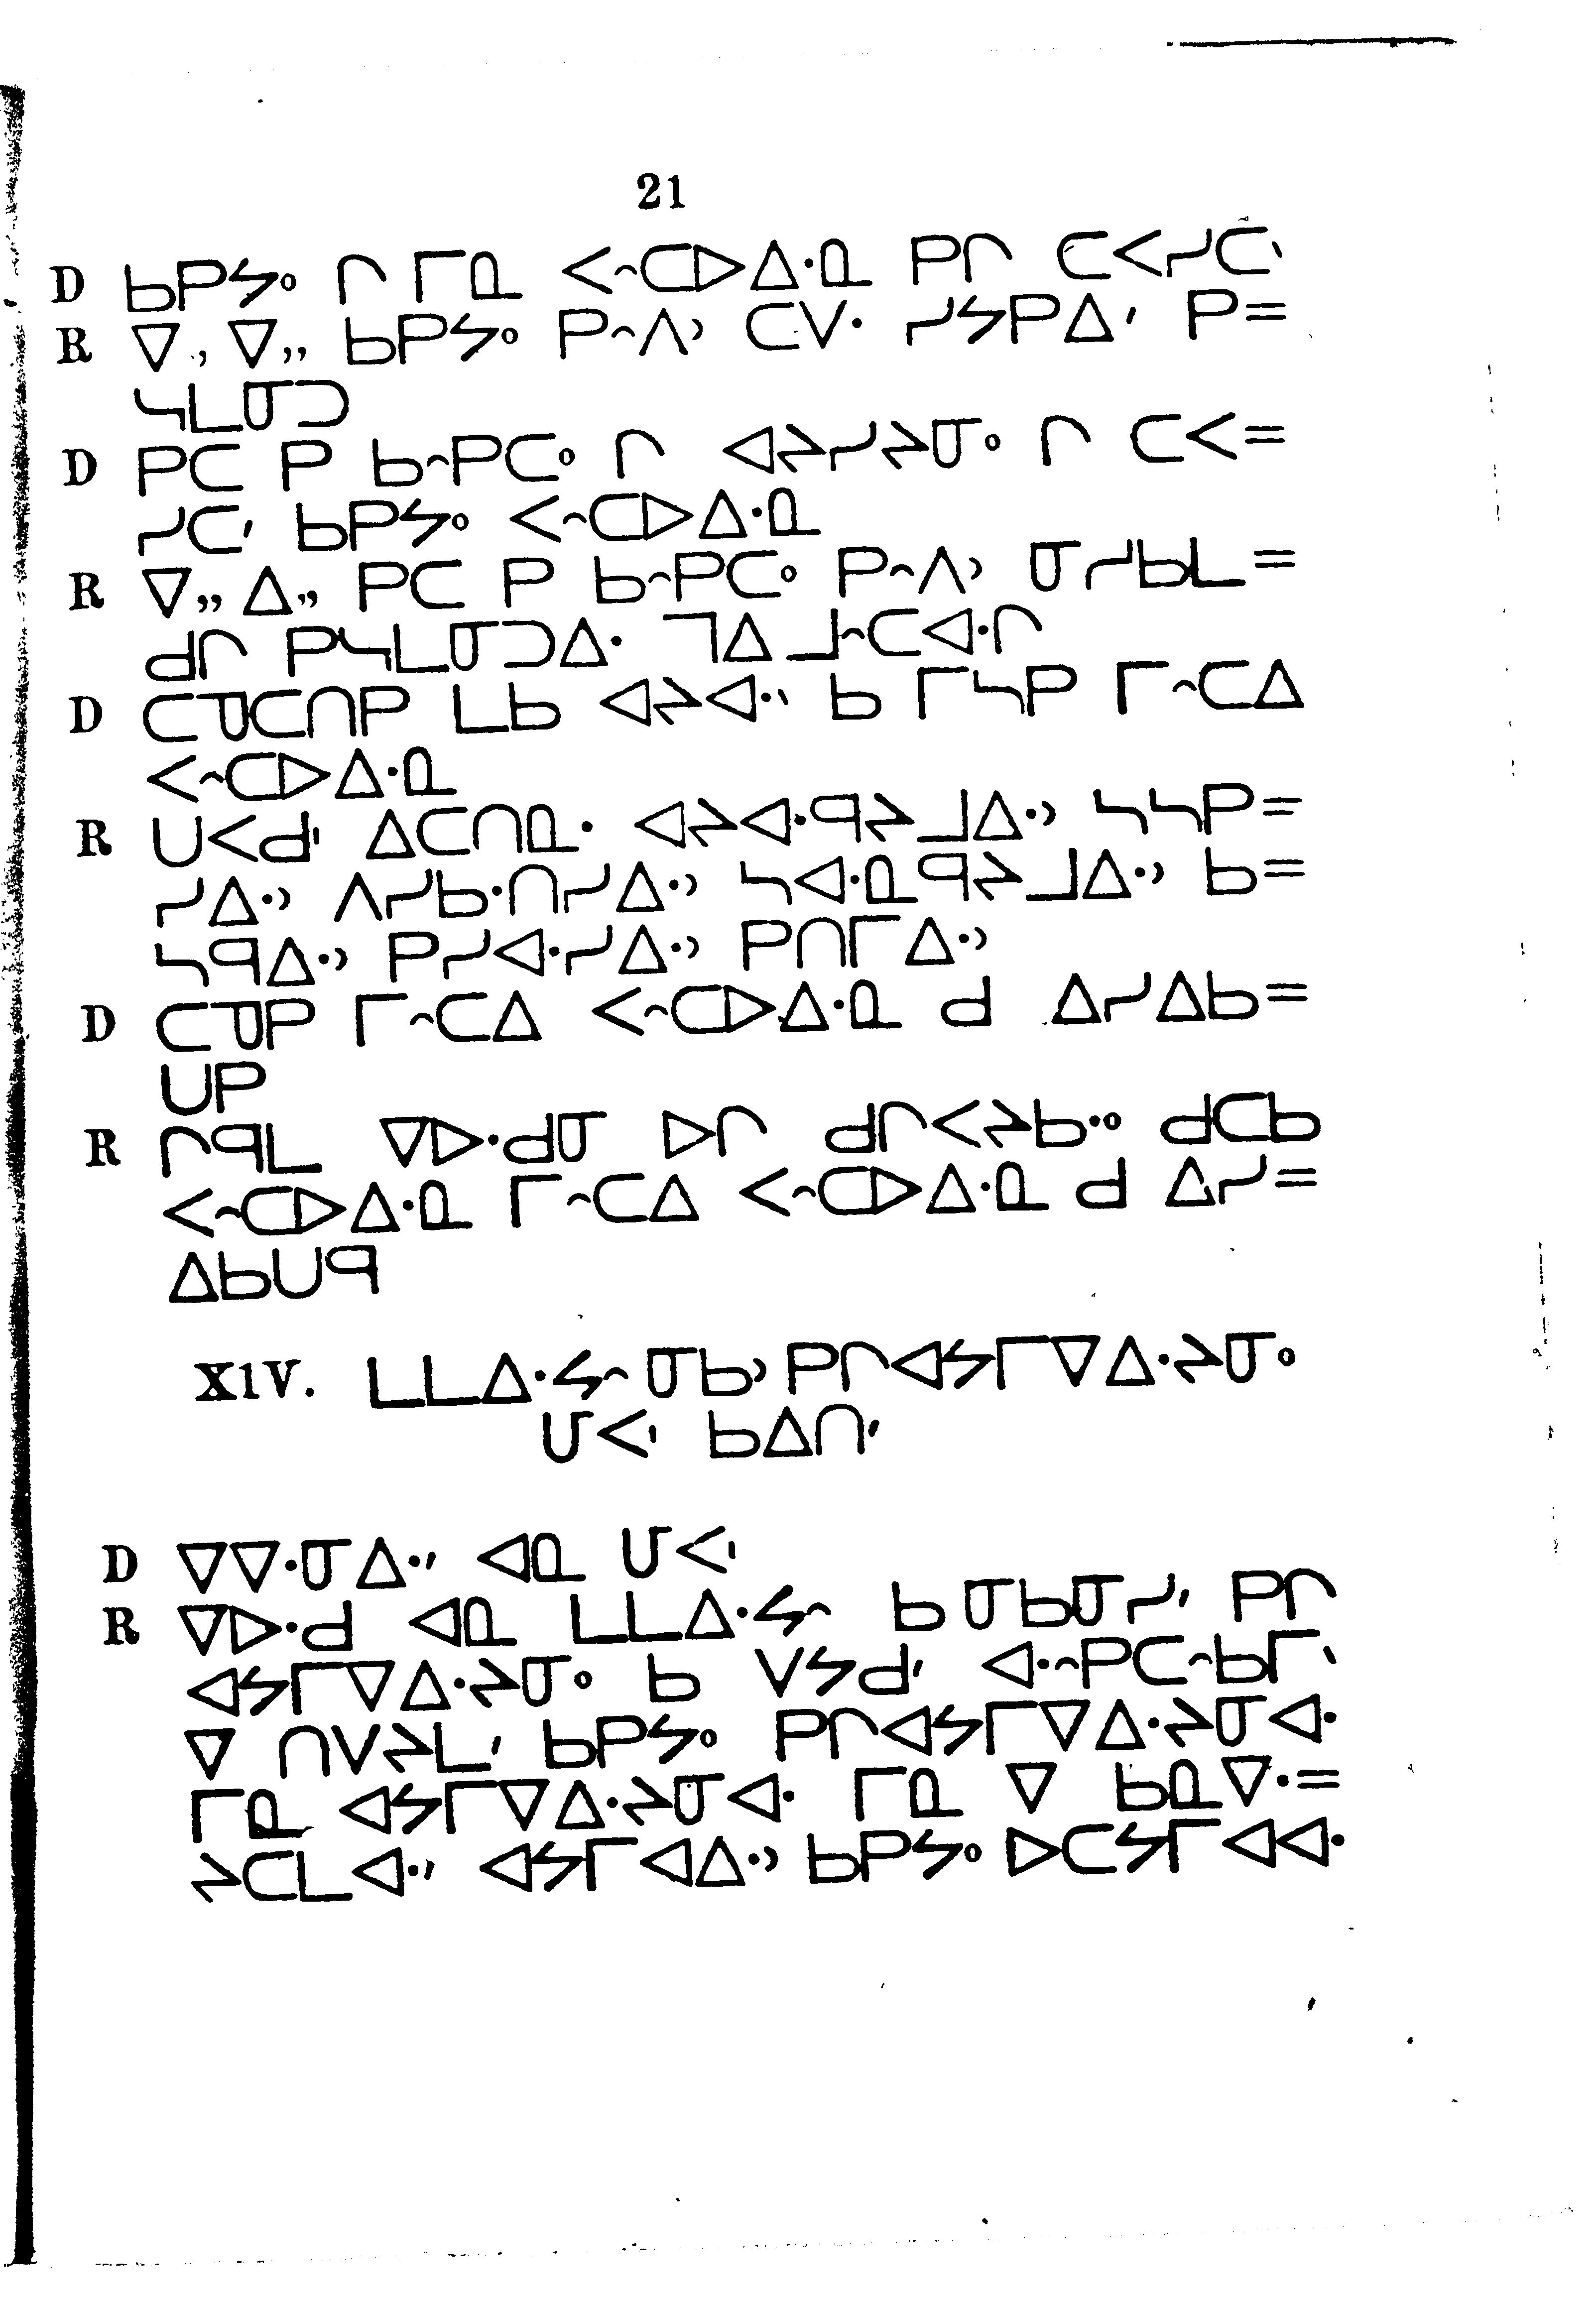 21
D ᑲᑭᔭᐤ ᒋ ᒥᓇ ᐸᐢᑕᐅᐃᐧᓇ ᑭᒋ ᑕᐸᓯᑕᐠ
R ᐁ, ᐁ,, ᑲᑭᔭᐤ ᑭᐢᐱᐣ ᑕᐯᐧ ᓯᔭᑭᐃᐟ ᑭ=
ᓴᒪᓂᑐ
D ᑭᑕ ᑭ ᑲᐢᑭᑕᐤ ᒋ ᐊᔨᓯᔨᓂᐤ ᒋ ᑕᐸ=
ᓯᑕᐟ ᑲᑭᔭᐤ ᐸᐢᑕᐅᐃᐧᓇ
R ᐁ,, ᐃ,, ᑭᑕ ᑭ ᑲᐢᑭᑕᐤ ᑭᐢᐱᐣ ᓂᓯᑲᒪ=
ᑯᒋ ᑭᓴᒪᓂᑐᐃᐧ ᒣᐃᒧᐢᑕᐊᐧᒋ
D ᑕᓀᑕᑎᑭ ᒪᑲ ᐊᔨᐊᐧᐠ ᑲ ᒥᓴᑭ ᒥᐢᑕᐃ
ᐸᐢᑕᐅᐃᐧᓇ
R ᑌᐸᑯᑊ ᐃᑕᑎᓇᐧ ᐊᔨᐊᐧᑫᔨᒧᐃᐧᐣ ᓴᓴᑭ=
ᓯᐃᐧᐣ ᐱᓯᑲᐧᑎᓯᐃᐧᐣ ᓴᐊᐧᓇᑫᔨᒧᐃᐧᐣ ᑲ=
ᓴᑫᐃᐧᐣ ᑭᓯᐊᐧᓯᐃᐧᐣ ᑭᑎᒥᐃᐧᐣ
D ᑕᓀᑭ ᒥᐢᑕᐃ ᐸᐢᑕᐅᐃᐧᓇ ᑯ ᐃᓯᐃᑲ=
ᑌᑭ
R ᒋᑫᒪ ᐁᐅᐧᑯᓂ ᐅᒋ ᑯᒋᐸᔨᑲᐧᐤ ᑯᑕᑲ
ᐸᐢᑕᐅᐃᐧᓇ ᒥᐢᑕᐃ ᐸᐢᑕᐅᐃᐧᓇ ᑯ ᐃᓯ=
ᐃᑲᑌᑫ
X1V. ᒪᒪᐃᐧᔭᐢ ᓂᑲᐣ ᑭᒋᐊᔭᒥᐁᐃᐧᔨᓂᐤ
ᑌᐸᑊ ᑲᐃᑎᐟ
D ᐁᐁᐧᓂᐃᐧᐟ ᐊᓇ ᑌᐸᑊ
R ᐁᐅᐧᑯ ᐊᓇ ᒪᒪᐃᐧᔭᐢ ᑲ ᓂᑲᓂᓯᐟ ᑭᒋ
ᐊᔭᒥᐁᐃᐧᔨᓂᐤ ᑲ ᐯᔭᑯᐟ ᐊᐧᐢᑭᑕᐢᑲᒥᐠ
ᐁ ᑎᐯᔨᒪᐟ ᑲᑭᔭᐤ ᑭᒋᐊᔭᒥᐁᐃᐧᔨᓂᐊᐧ
ᒥᓇ ᐊᔭᒥᐁᐃᐧᔨᓂᐊᐧ ᒥᓇ ᐁ ᑲᓇᐁᐧ=
ᔨᑕᒪᐊᐧᐟ ᐊᔭᒥᐊᐃᐧᐣ ᑲᑭᔭᐤ ᐅᑕᔭᒥᐊᐊᐧ